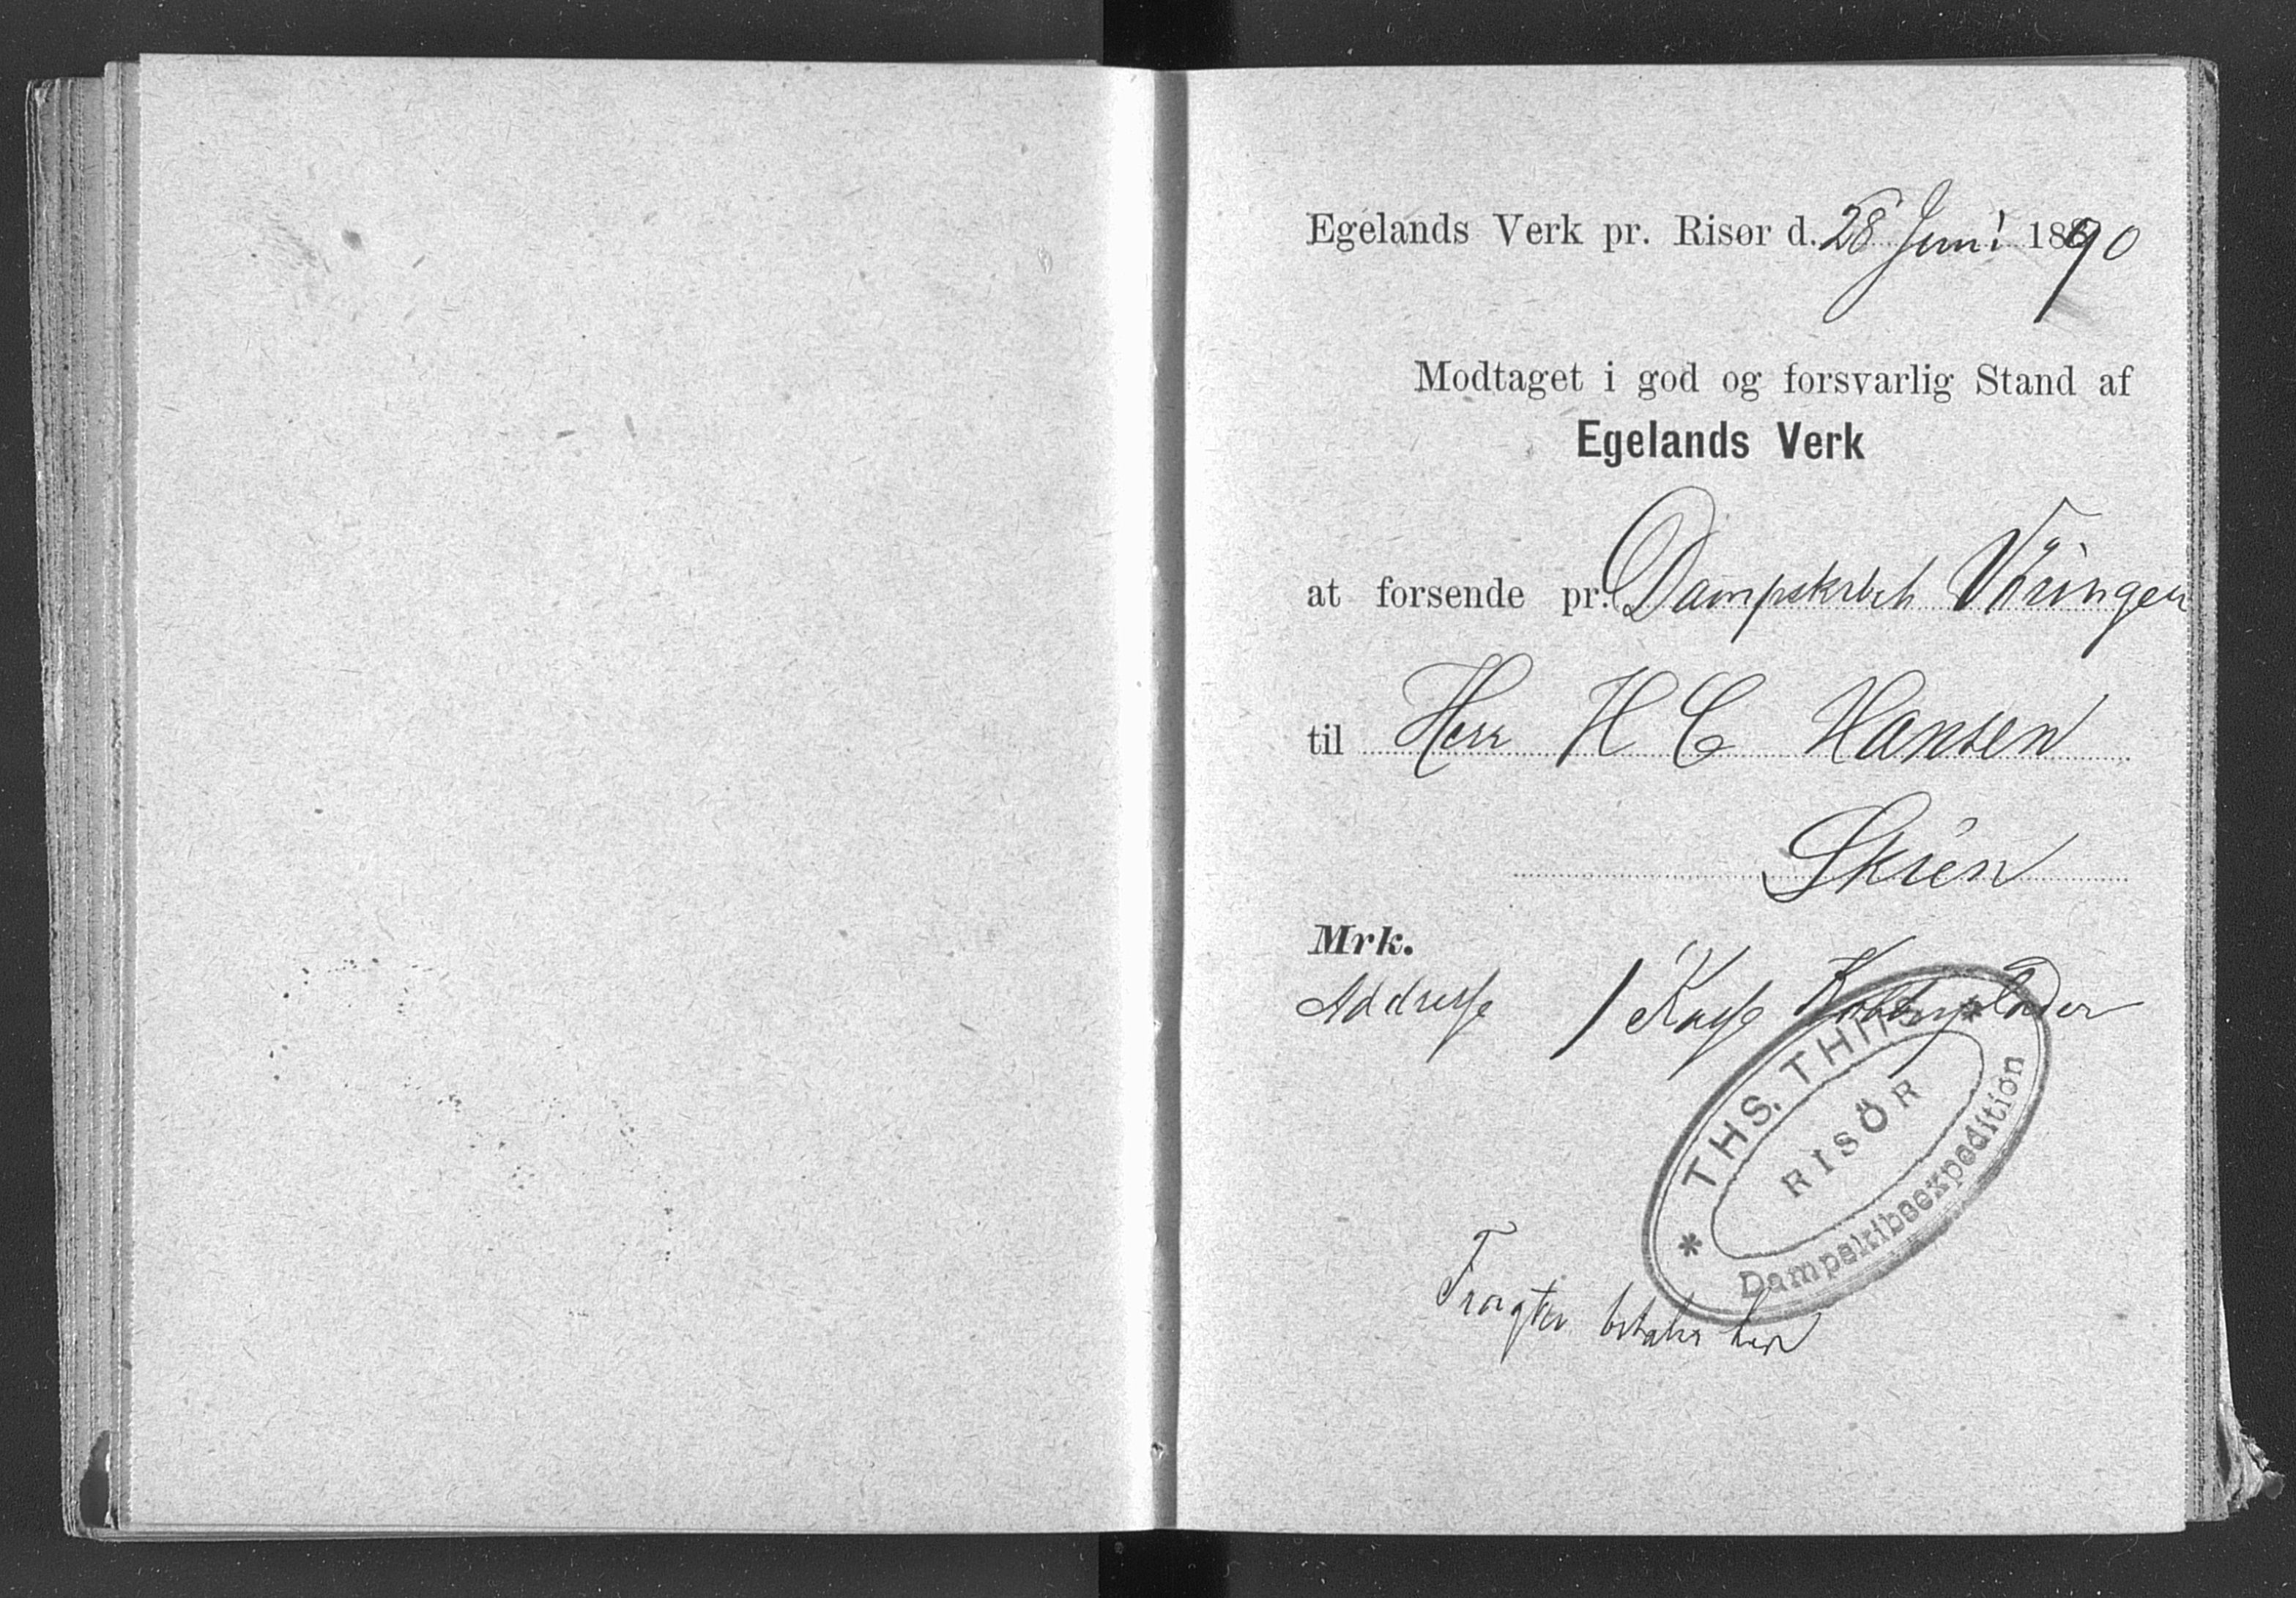 Egelands Verk pr. Risør d. 28 Juni 1890
Modtaget i god og forsvarlig Stand af
Egelands Verk
at forsende pr. Dampskibet Vöringen
til Herr H C Hansen
Skien
Mrk.
Addresse 1 Kasse
THS. THIIS
RISÖR
Dampskibsexpedition
Fragten betales her